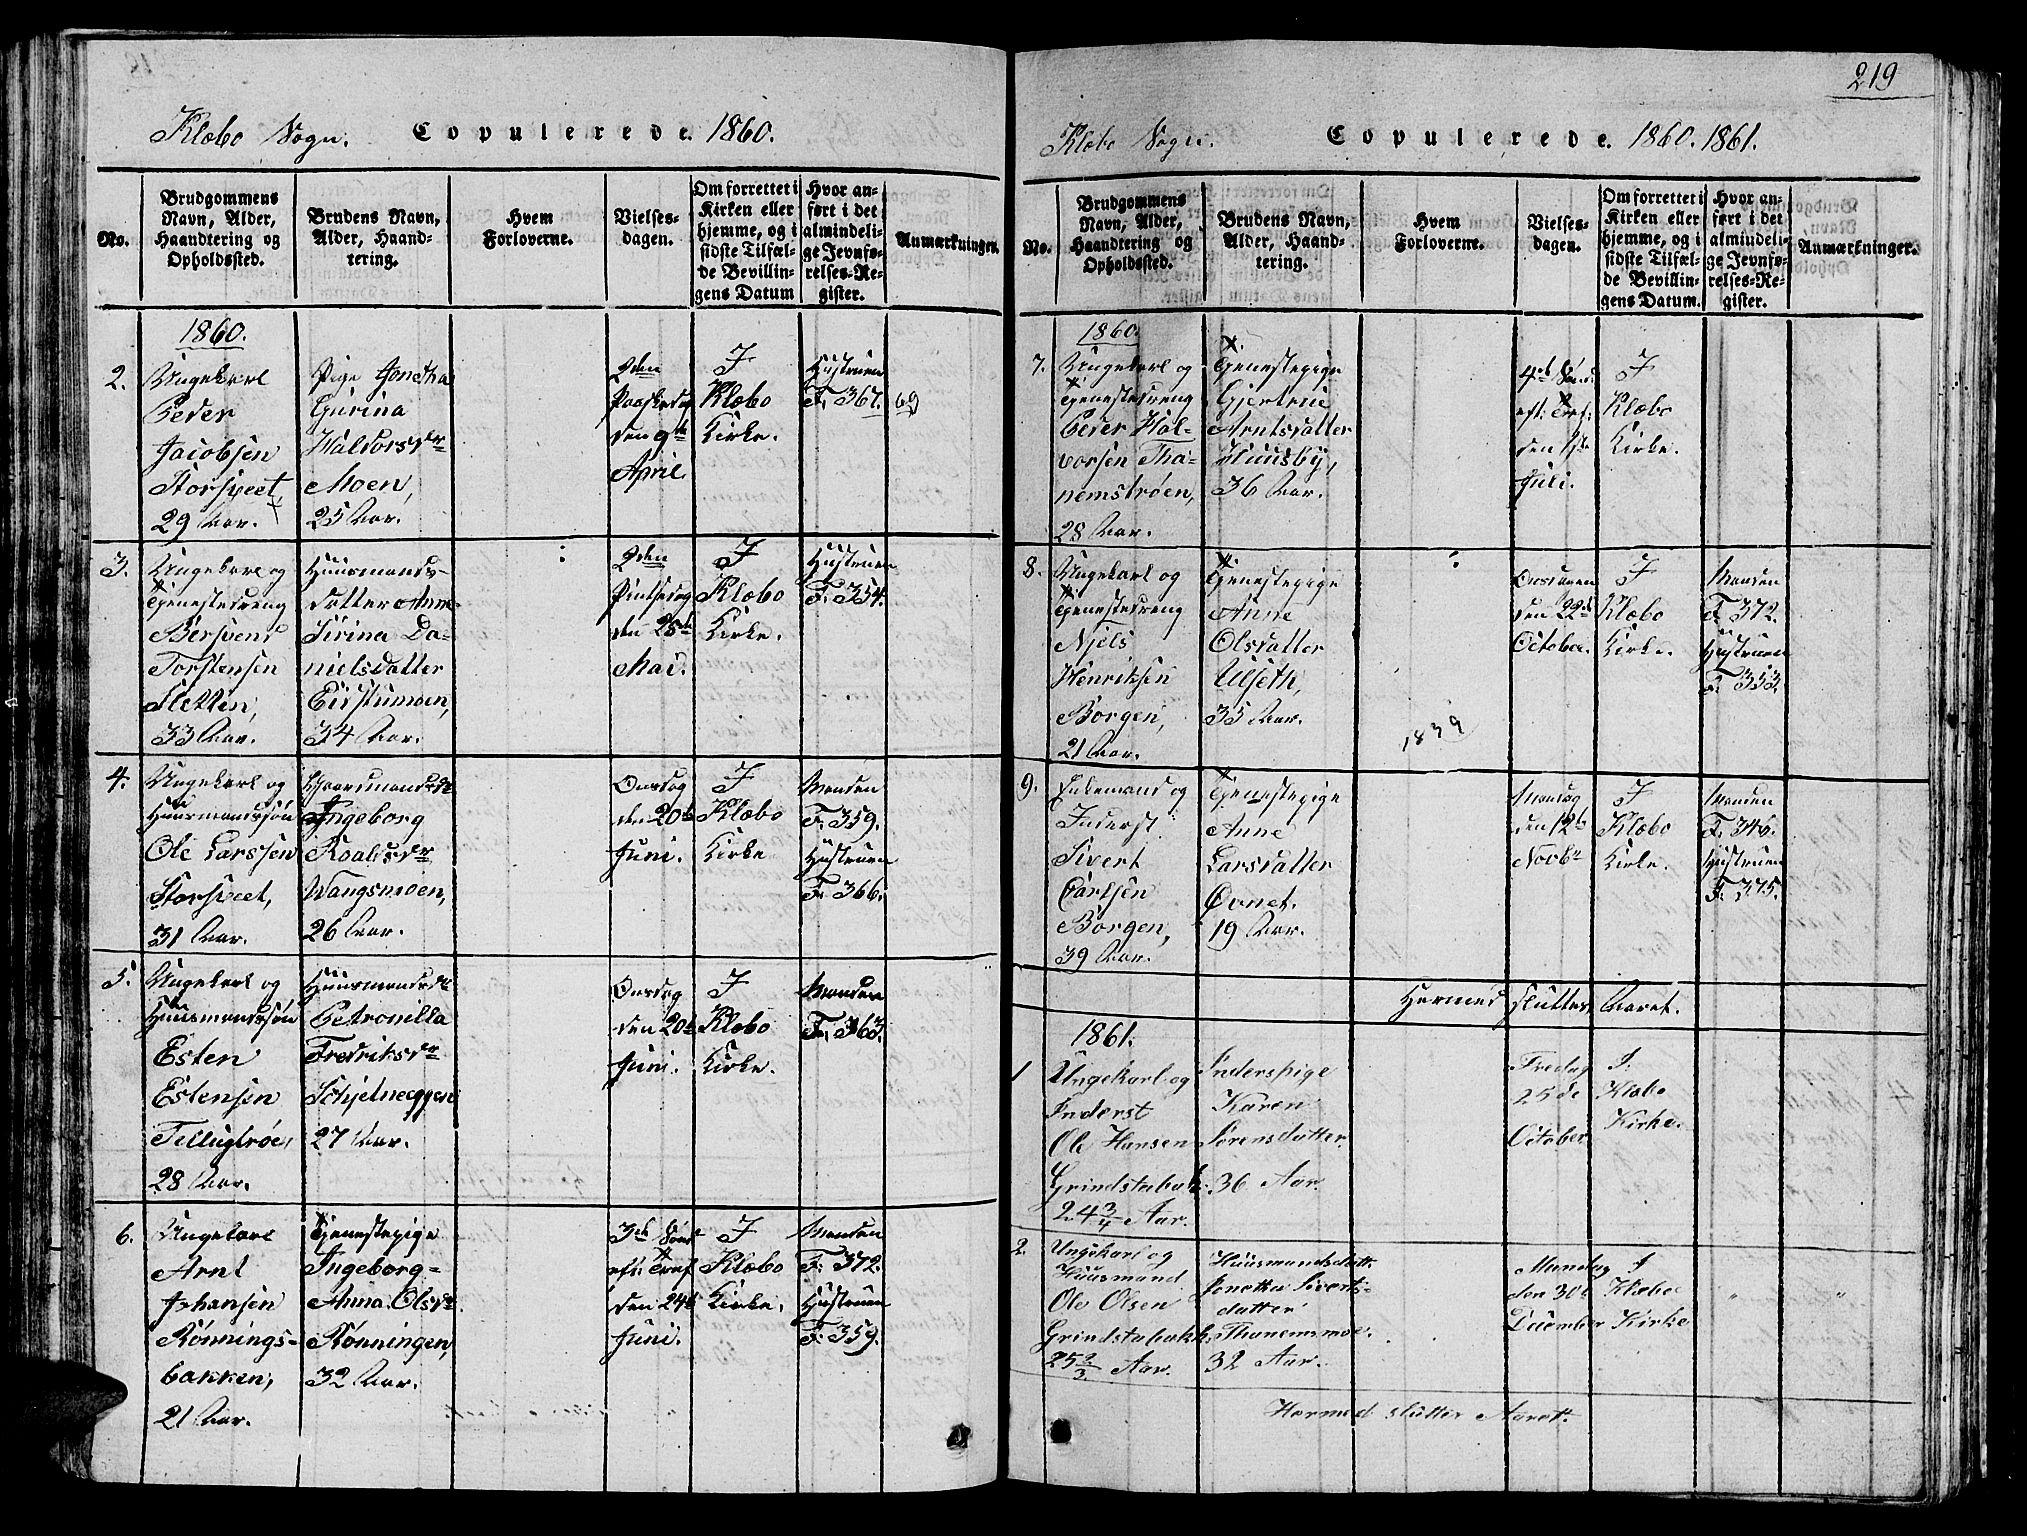 Klæbo Sogn. Copulerede. 1860.
No.
Brudgommens
Navn, Alder,
Haandtering og
Opholdssted.
Brudens Navn,
Alder, Haand-
tering.
Hvem
Forloverne.
Vielses-
dagen.
Om forrettet i
Kirken eller
hjemme, og i
sidste Tilfæl-
de Bevillin-
gens Datum
Hvor an-
ført i det
almindeli-
ge Jevnfø-
relses-Re-
gister.
Anmærkninger.
1860.
2.
Ungekarl
Peder
Jacobsen
Storsveet,
29 Aar.
Pige Jonetha
Gurina
Haldorsdr
Moen,
25 Aar.
2den
Paaskedag
den 9de
April.
I
Klæbo
Kirke.
Hustruen
F. 367.
69
3.
Ungekarl og
Tjenestedreng
Bersvend
Torstensen
Sletten,
33 Aar.
Huusmands-
datter Anne
Sirina Da-
nielsdatter
Eidstumoen,
34 Aar.
2den
Pintsedag
den 28de
Mai.
I
Klæbo
Kirke.
Hustruen
F. 354.
4.
Ungekarl og
Huusmandssøn
Ole Larssen
Storsveet,
31 Aar.
Gaardmandsdr
Ingeborg
Roaldsdr
Wangsmoen,
26 Aar.
Onsdag
den 20de
Juni.
I
Klæbo
Kirke
Manden
F. 359.
Hustruen
F. 366.
5.
Ungekarl og
Huusmandssøn
Esten
Estensen
Tellugtrøe,
28 Aar.
Huusmandsdr
Petronilla
Fredriksdr
Schjelneggen
27 Aar.
Onsdag
den 20de
Juni.
I
Klæbo
Kirke.
Manden
F. 363.
6.
Ungekarl
Arnt
Johansen
Rønnings-
bakken,
21 Aar.
Tjenestepige
Ingeborg-
Anna Olsdr
Rønningen,
32 Aar.
3de Sønd
eft: Tref
den 24de
Juni.
I
Klæbo
Kirke.
Manden
F. 372.
Hustruen
F. 359.
219
Klæbo Sogn. Copulerede. 1860. 1861.
No.
Brudgommens
Navn, Alder,
Haandtering og
Opholdssted.
Brudens Navn,
Alder, Haand-
tering.
Hvem
Forloverne.
Vielses-
dagen.
Om forrettet i
Kirken eller
hjemme, og i
sidste Tilfæl-
de Bevillin-
gens Datum.
Hvor an-
ført i det
almindeli-
ge Jevnfø-
relses-Re-
gister.
Anmærkninger.
1860.
7.
Ungekarl og
Tjenestedreng
Peder Hal-
vorsen Tha-
nemstrøen,
28 Aar.
Tjenestepige
Gjertrue
Arntsdatter
Huusby,
36 Aar.
4de Sønd.
eft: Tref.
den 1ste
Juli.
I
Klæbo
Kirke.
8.
Ungekarl og
Tjenestedreng
Njels
Henriksen
Borgen,
21 Aar.
Tjenestepige
Anne
Olsdatter
Ulseth,
35 Aar.
1839
Onsdagen
den 22de
October.
I
Klæbo
Kirke.
Manden
F. 372.
Hustruen
F. 353.
9.
Enkemand og
Inderst
Sivert
Carlsen
Borgen,
39 Aar.
Tjenestepige
Anne
Larsdatter
Ovnet.
19 Aar.
Mandag
den 12te
Novbr
I
Klæbo
Kirke.
Manden
F. 346.
Hustruen
F. 375.
Hermed slutter Aaret.
1861.
1
Ungekarl og
Inderst
Ole Hansen
Grindstabak.
24 3/4 Aar.
Inderspige
Karen
Sørensdatter
36 Aar.
Fredag
25de
October
I.
Klæbo
Kirke.
2.
Ungekarl og
Huusmand
Ole Olsen
Grindstabakk.
25 2/3 Aar.
Huusmandsdatt.
Jonetha Siverts-
datter
Thanemsmoe.
32 Aar.
Mandag
den 30te
December
I
Klæboe
Kirke
"
"
Hermed slutter Aaret.